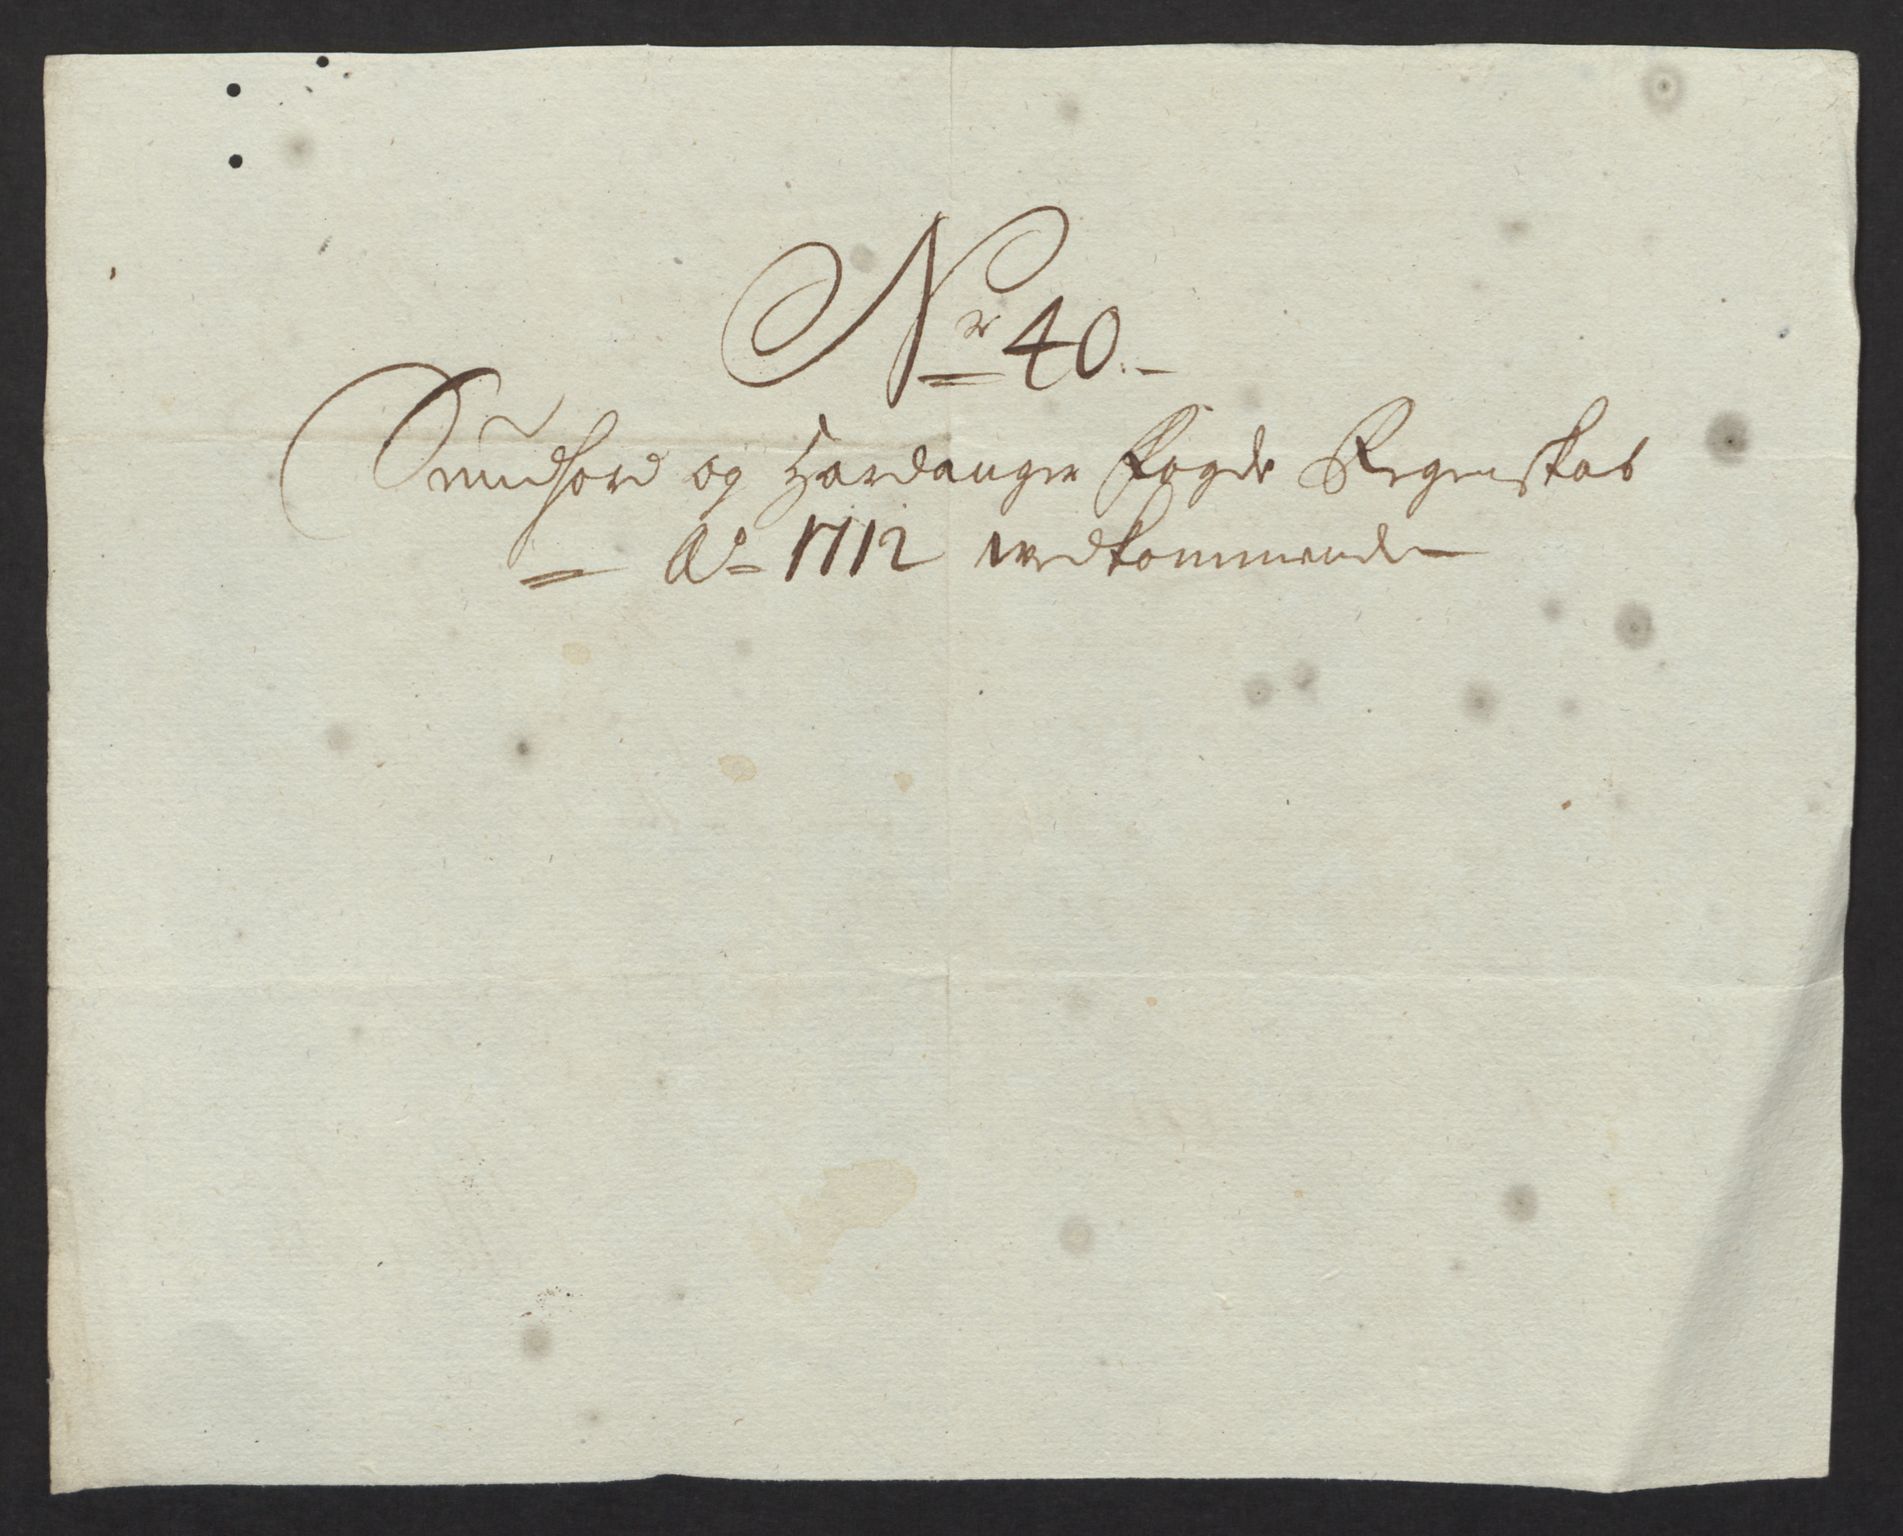 Nr 40.-
Sundhord og Hardanger Fogde Regenskab
Ao 1712 vedkommende